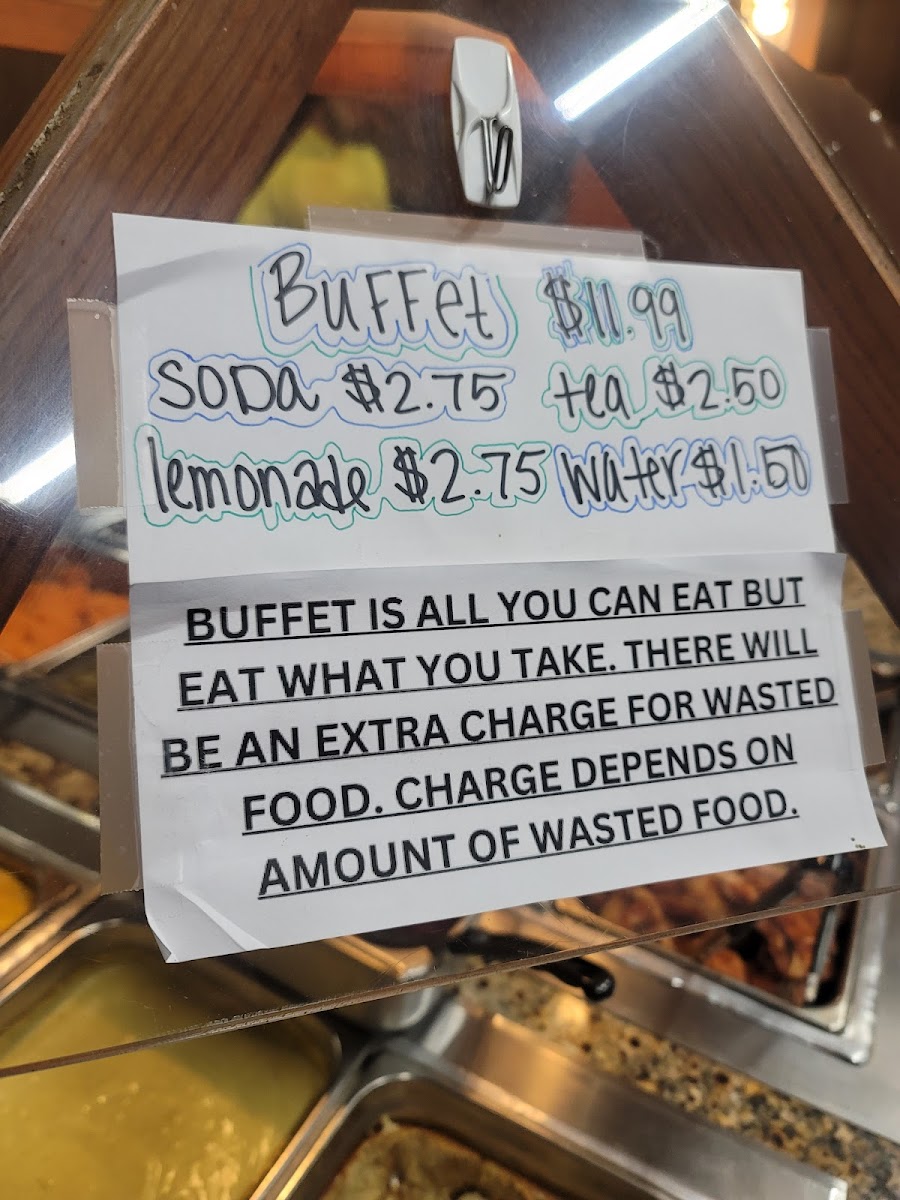 Buffet $11.99
Soda $2.75 tea $2.50
lemonade $2.75 Water $1.50
BUFFET IS ALL YOU CAN EAT BUT
EAT WHAT YOU TAKE. THERE WILL
BE AN EXTRA CHARGE FOR WASTED
FOOD. CHARGE DEPENDS ON
AMOUNT OF WASTED FOOD.